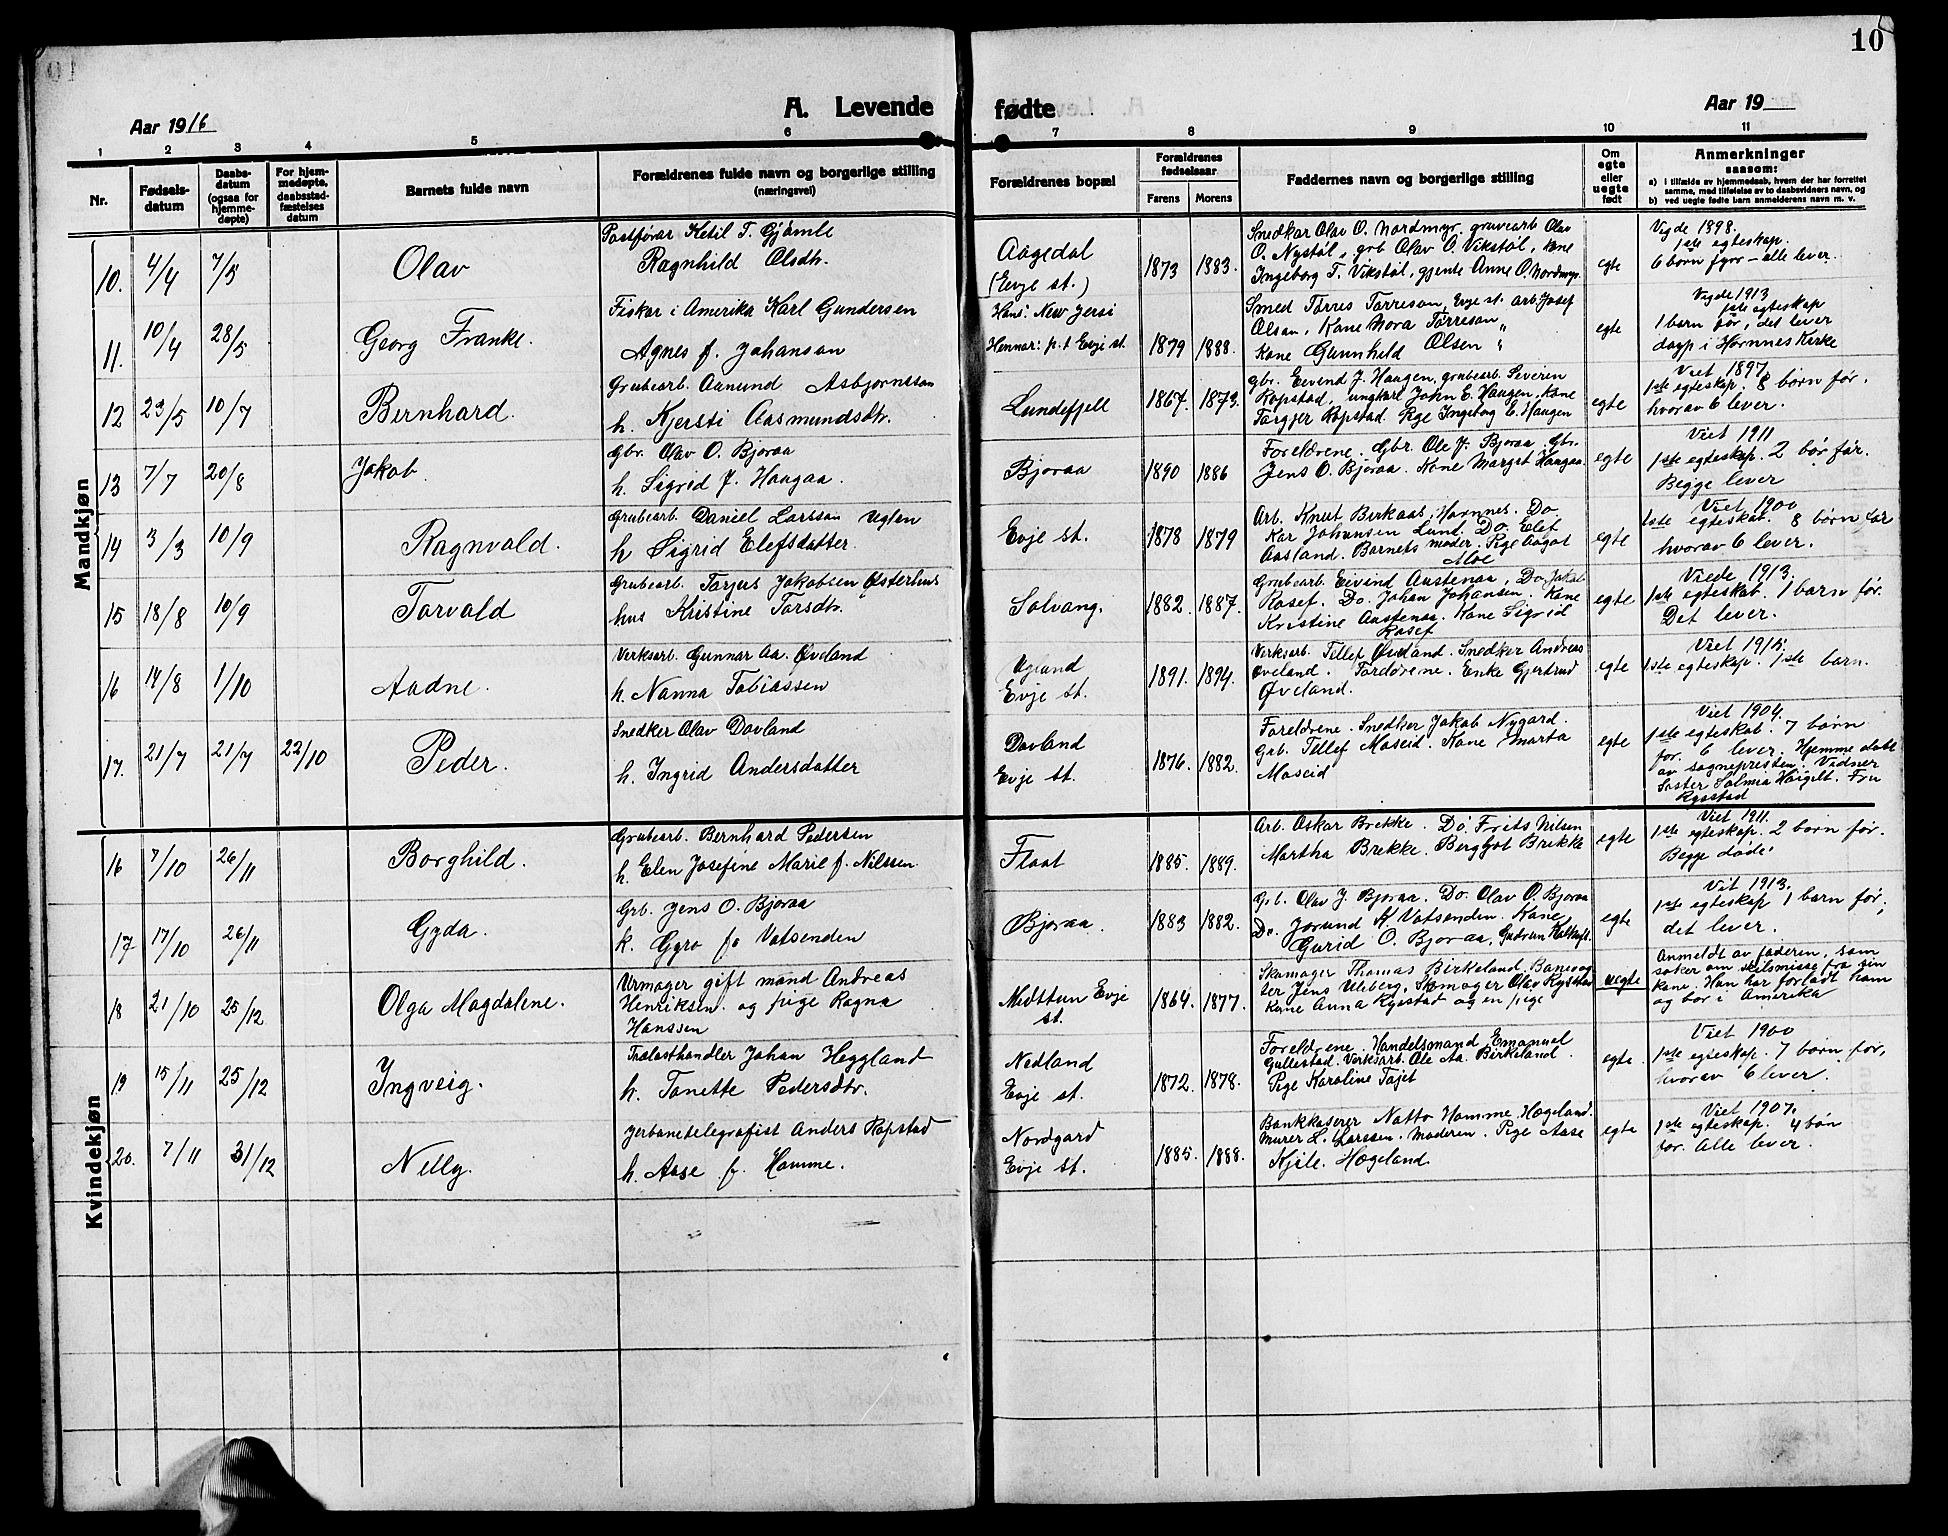 10
A. Levende fødte
Aar 1916
Aar 19
1 2 3 4 5 6 7 8 9 10 11
Nr.
Fødsels-
datum
Daabs-
datum
(ogsaa for
hjemme-
døpte)
For hjem-
medøpte,
daabsstad-
fæstelses
datum
Barnets fulde navn
Forældrenes fulde navn og borgerlige stilling
(næringsvei)
Forældrenes bopæl
Forældrenes
fødselsaar
Farens Morens
Faddernes navn og borgerlige stilling
Om
egte
eller
uegte
født
Anmerkninger
saasom:
a) i tilfælde av hjemmedaab, hvem der har forrettet
samme, med tilføielse av to daabsvidners navn, og
b) ved uegte fødte barn anmelderens navn m. v.
Mandkjøn
10. 4/4 7/5 Olav
Postfører Ketil T. Gjømle
Ragnhild Olsdtr.
Aagedal
(Evje st.)
1873 1883.
Snedkar Olav O. Nordmyr, gruvearb Olav
O. Nystøl, grb Olav O. Vikstøl, kone
Ingeborg T. Vikstøl, gjente Anne O. Nordmyr.
egte
Vigde 1898.
1ste egteskap.
6 born fyrr – alle lever.
11. 10/4 28/5 Georg Franke.
Fiskar i Amerika Karl Gundersen
Agnes f. Johanson
Hans: New Jersi
Hennar: p.t Evje st.
1879 1888.
Smed Tørres Tørreson, Evje st. arb. Josef
Olsen, Kone Nora Tørreson "
Kone Gunnhild Olsen "
egte
Vigde 1913
1ste egteskap
1 barn før, det lever
døyp i Hornnes Kirke
12 23/5 10/7 Bernhard.
Grubearb. Aanund Asbjørnsson
h. Kjersti Aasmundsdtr.
Lundefjell
1867. 1873.
gbr. Eivind J. Haugen, grubearb. Severin
Ropstad, ungkarl John E. Haugen, kone
Torgjer Ropstad. Pge Ingeborg E. Haugen
egte
Viet 1897.
1ste egteskap. 8 børn før.
hvorav 6 lever.
13 7/7 20/8 Jakob.
Gbr. Olav O. Bjoraa
h. Sigrid J. Haugaa.
Bjoraa
1890 1886
Foreldrene. Gbr. Ole J. Bjoraa. Gbr.
Jens O. Bjoraa. Kone Margit Haugaa.
egte
Viet 1911
1ste egteskap. 2 bør før.
Begge lever
14 3/3 10/9 Ragnvald.
Grubearb. Daniel Larsson Uglen
h Sigrid Elefsdatter.
Evje st.
1878 1879
Arb. Knut Birkaas, Hornnes. Do
Kar Johansen Lund. Do. Elef
Aasland. Barnets moder. Pige Aagot
Moe
egte
Viet 1900
1ste egteskab. 8 børn før
hvorav 6 lever.
15 18/8 10/9 Torvald
Grubearb. Torjus Jakobsen Østerhus
hus Kristine Torsdtr.
Solvang.
1882. 1887.
Grubearb. Eivind Austenaa, Do Jakob
Rosef. Do. Johan Johansen. Kone
Kristine Austenaa. Kone Sigrid
Rosef
egte
Viede 1913.
1ste egteskab. 1 barn før.
Det lever.
16 14/8 1/10 Aadne.
Verksarb. Gunnar Aa. Øveland
h. Nanna Tobiassen
Evje st.
1891. 1894.
Verksarb. Tellef Øveland. Snedker Andreas
Øveland. Enke Gjertrud
Øveland.
egte
Viet 1915.
1ste egteskap. 1ste barn.
17. 21/7 21/7 22/10 Peder.
Snedker Olav Dovland
h. Ingrid Andersdatter
Dovland
Evje st.
1876. 1882.
Foreldrene. Snedker Jakob Nygard.
Grb. Tellef Moseid. Kone Marta
Moseid
egte
Viet 1904.
1ste egteskab. 7 børn
før. 6 lever. Hjemme døbt
av sognepresten. Vidner
Søster Solmia Haigelt. Fru
Rysstad
Kvindekjøn
16 7/10 26/11 Borghild.
Grubearb. Bernhard Pedersen
h. Elen Josefine Marie f. Nilssen
Flaat
1885. 1889.
Arb. Oskar Brekke. Do. Frits Nilsen
Martha Brekke. Bergljot Brekke
egte
Viet 1911.
1ste egteskap. 2 børn før.
Begge døde.
17 17/10 26/11 Gyda.
Grb. Jens O. Bjoraa
k. Gyro fø Vatsenden
Bjoraa.
1883 1882.
Grb. Olav J. Bjoraa. Do. Olav O. Bjoraa
Do. Jorund K Vatsenden. Kone
Gurid O. Bjoraa, Gudrun
egte
Vit 1913.
1ste egteskap 1 barn før,
det lever.
18 21/10 25/12 Olga Magdalene.
Urmager gift mand Andreas
Henriksen. og pige Ragna
Hanssen
Midttun Evje
st.
1864. 1877.
Skomager Thomas Birkeland. Banevog
ter Jens Uleberg, Skomager Olav Rysstad
kone Anna Rysstad og en pige
uegte
Anmeldt av faderen, som
søker om skilsmisse fra sin
kone. Hun har forladt ham
og bor i Amerika
19 15/11 25/12 Ingveig.
Trælasthandler Johan Heggland
h. Tonette Pedersdtr.
Nedland
Evje st.
1872. 1878.
Foreldrene. Handelsmand Emanuel
Gullestad. Verksarb. Ole Aa. Birkeland.
Pige Karoline Tajet
egte.
Viet 1900
1ste egteskap. 7 børn før,
hvorav 6 lever.
20. 7/11 31/12 Nelly.
Jerbanetelegrafist Anders Ropstad
h. Aase f. Homme.
Nordgard
Evje st.
1885. 1888.
Bankkaserer Natto Homme, Hægeland.
Murer L. Larssen. Moderen. Pige Aase
Kjile. Hægeland
egte
Viet 1907.
1ste egteskap. 4 bøn
før. Alle lever